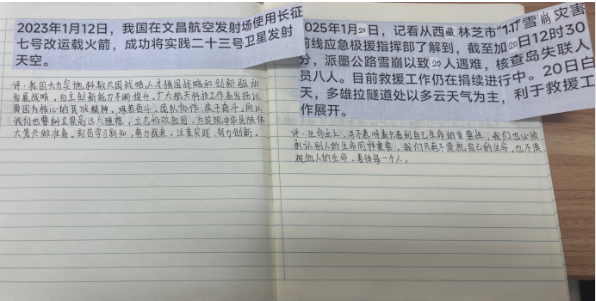 2023年1月12日，我国在文昌航空发射场使用长征
七号改运载火箭，成功将实践二十三号卫星发射
天空。
评：我国大力实施科教兴国战略人才强国战略和创新驱动
发展战略，自主创新能力不断提升。广大航天科技工作者发扬以
爱国为核心的民族精神，艰苦奋斗，团队协作，
我们也要树立崇高远大理想，立志报效祖国，为实现中华民族伟
大复兴做准备，刻苦学习新知，努力探索，注重实践，努力创新。
2025年1月20，记看从西藏林芝市“1.17”雪崩灾害
前线应急极援指挥部了解到，截至加20日12时30
分，派墨公路雪崩以致20人遇难，核查岛失联人
员八人。目前救援工作仍在捐续进行中。20日白
天，多雄拉隧道处以多云天气为主，利于救援工
作展开。
评：生命至上，并不意味着只看到自己生命的重要性，我们也必须
承认别人的生命同样重要。我们不漠视自己的生命，也不漠
视他人的生命，善待每一个人。